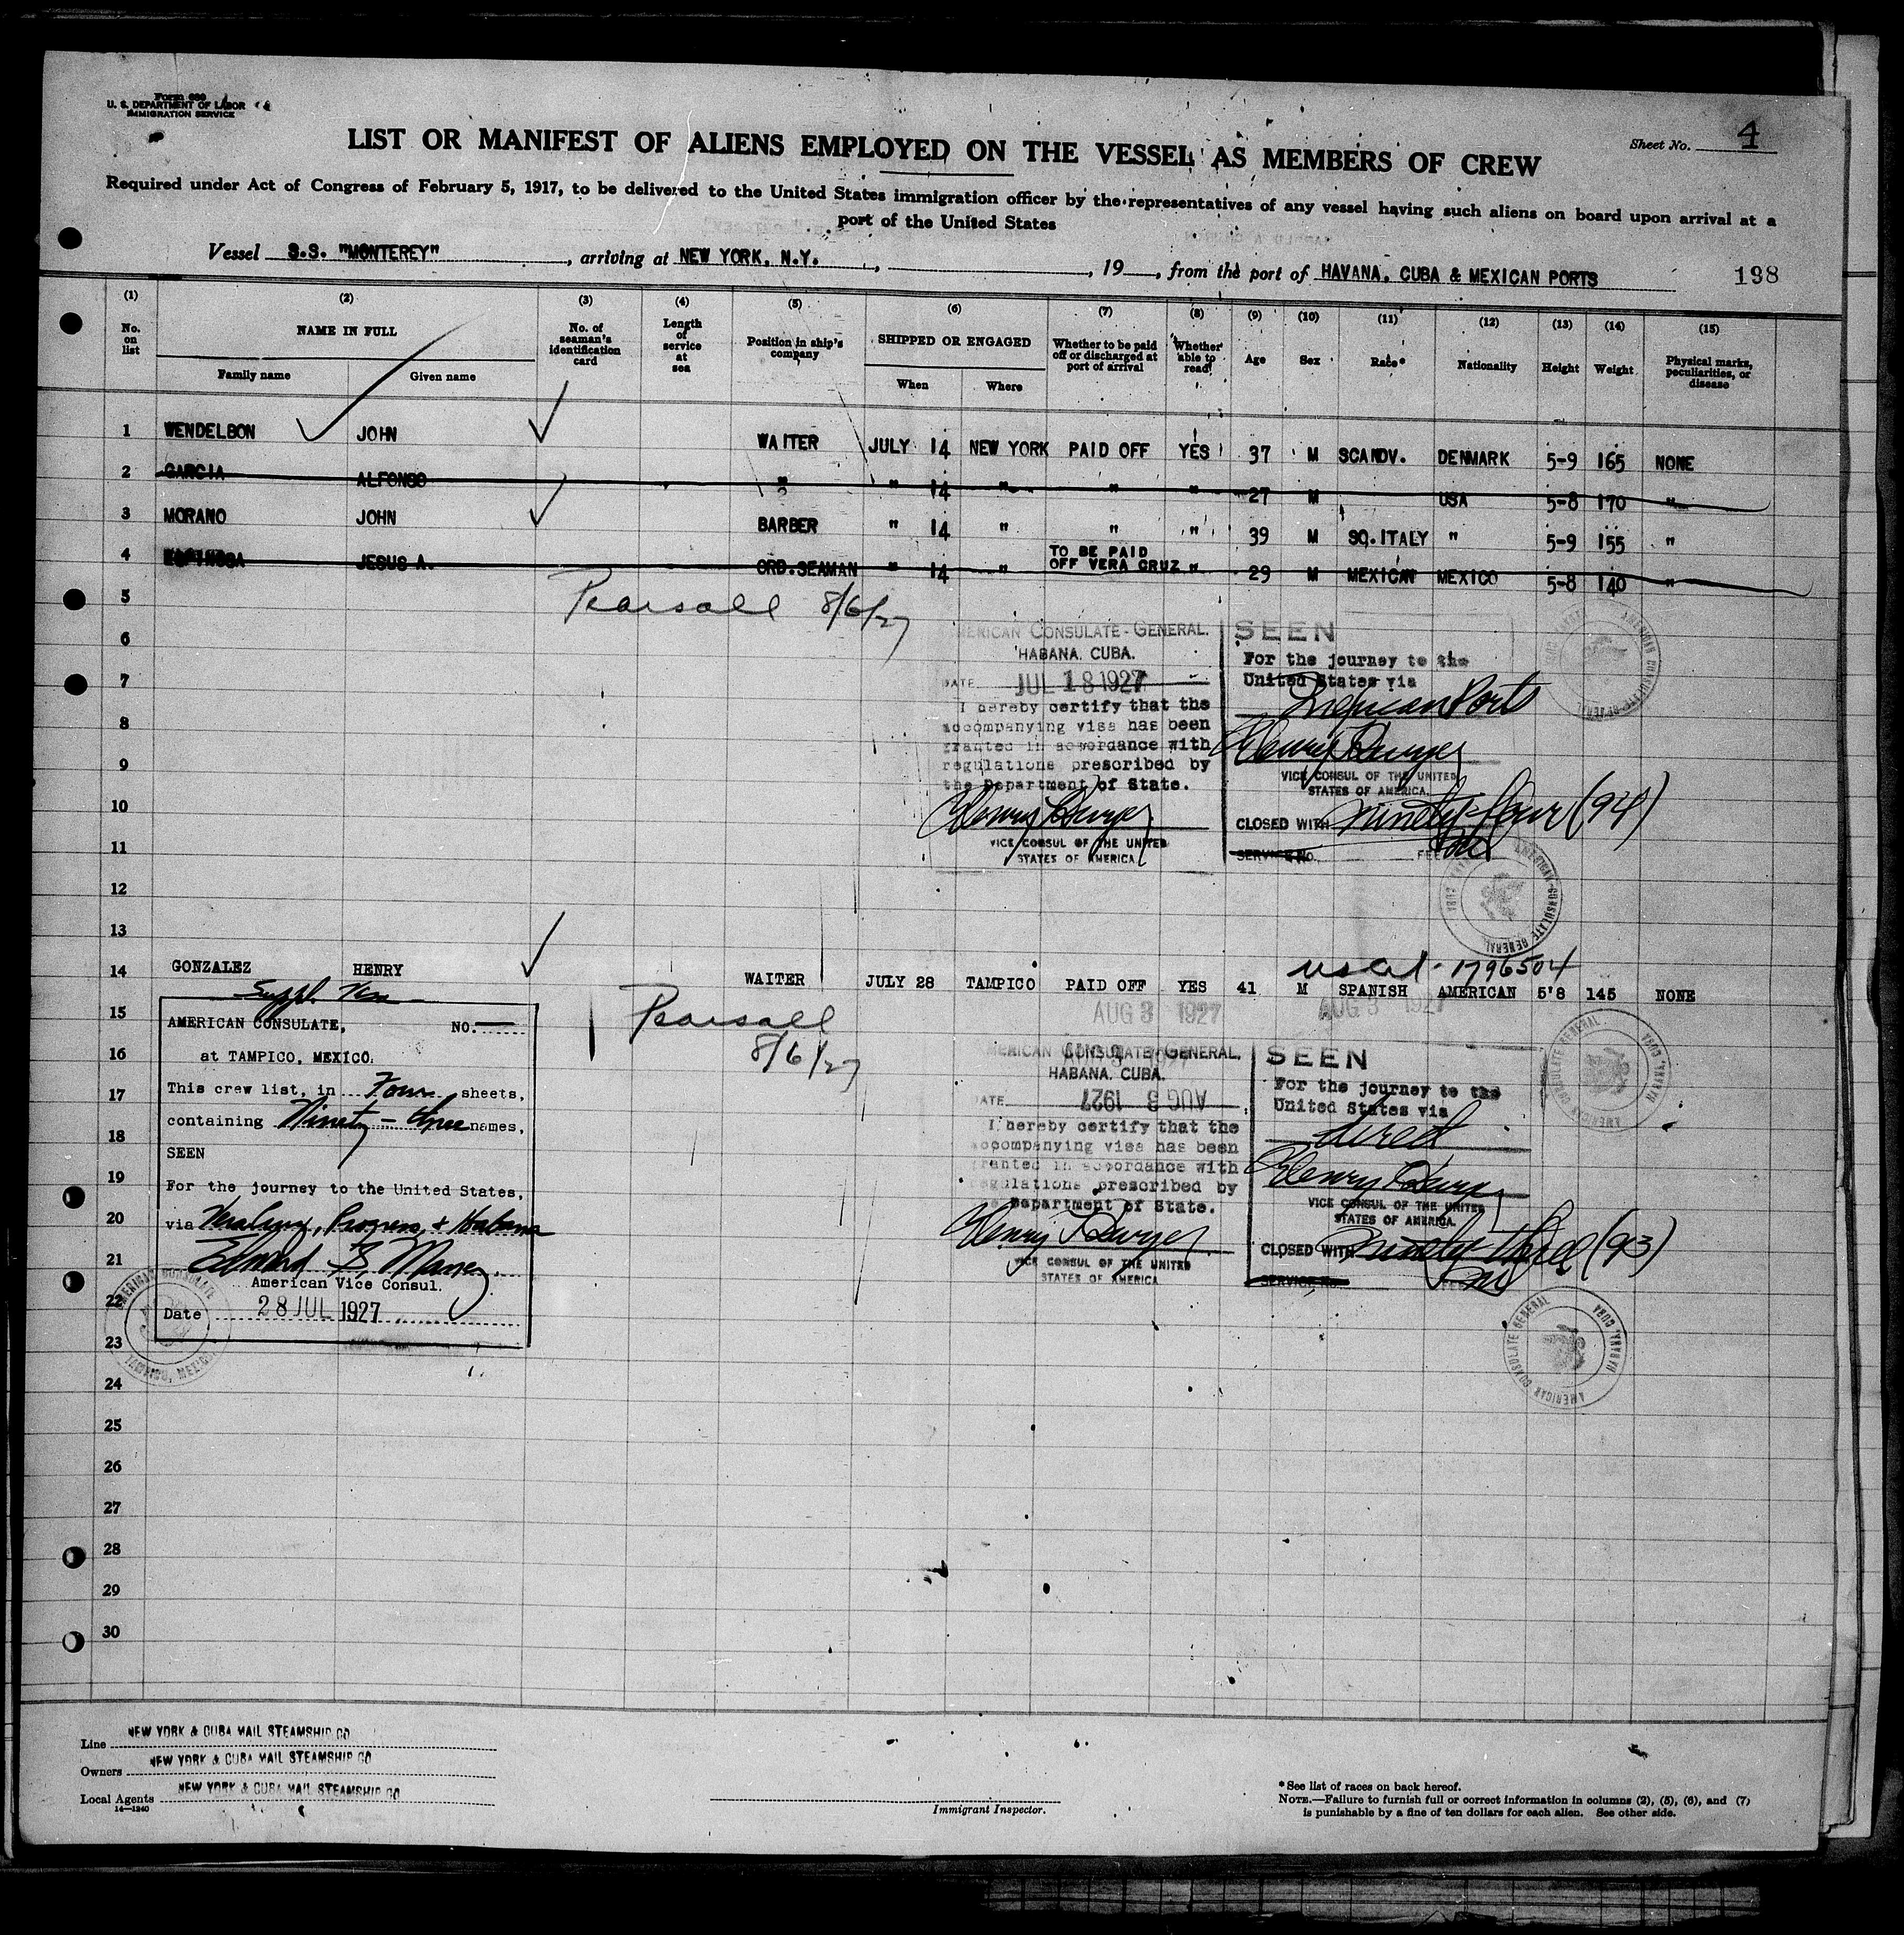 Form 689
U. S. DEPARTMENT OF LABOR
IMMIGRATION SERVICE
Sheet No. 4
LIST OR MANIFEST OF ALIENS EMPLOYED ON THE VESSEL AS MEMBERS OF CREW
Required under Act of Congress of February 5, 1917, to be delivered to the United States immigration officer by the representatives of any vessel having such aliens on board upon arrival at a
port of the United States
Vessel S.S. "MONTEREY", arriving at NEW YORK, N.Y., 19, from the port of HAVANA, CUBA & MEXICAN PORTS 198
(1) (2) (3) (4) (5) (6) (7) (8) (9) (10) (11) (12) (13) (14) (15)
No. on list NAME IN FULL Family name Given name No. of seaman's identification card Length of service at sea Position in ship's company SHIPPED OR ENGAGED When Where Whether to be paid off or discharged at port of arrival Whether able to read Age Sex Race* Nationality Height Weight Physical marks, peculiarities, or disease
1 WENDELBON JOHN WAITER JULY 14 NEW YORK PAID OFF YES 37 M SCANDV. DENMARK 5-9 165 NONE
2 GARCIA ALFONSO " " 14 " " " 27 M USA 5-8 170 "
3 MORANO JOHN BARBER " 14 " " " 39 M SO. ITALY " 5-9 155 "
4 ESPINOSA JESUS A. ORD. SEAMAN " 14 " TO BE PAID OFF VERA CRUZ " 29 M MEXICAN MEXICO 5-8 140 "
5
Pearsall 8/6/27
6
7
8
9
10
11
12
13
AMERICAN CONSULATE-GENERAL.
HABANA. CUBA.
DATE JUL 18 1927
I hereby certify that the
accompanying visa has been
granted in accordance with
regulations prescribed by
the Department of State.
Henry Dwyer
VICE CONSUL OF THE UNITED
STATES OF AMERICA
SEEN
For the journey to the
United States via
Mexican Ports
Henry Dwyer
VICE CONSUL OF THE UNITED
STATES OF AMERICA.
CLOSED WITH ninety four (94)
SERVICE No. FEE
AMERICAN CONSULATE GENERAL
14 GONZALEZ HENRY WAITER JULY 28 TAMPICO PAID OFF YES 41 M SPANISH AMERICAN 5'8 145 NONE
1796504
AUG 3 1927 AUG 3 1927
Pearsall
8/6/27
15
16
17
18
19
20
21
22
23
24
25
26
27
28
29
30
Suppl. Visa
AMERICAN CONSULATE, NO.
at TAMPICO, MEXICO.
This crew list, in Four sheets,
containing Ninety-three names,
SEEN
For the journey to the United States,
via Vera Cruz, Progreso, & Habana
American Vice Consul.
Date 28 JUL 1927
AMERICAN CONSULATE
TAMPICO, MEXICO
AMERICAN CONSULATE-GENERAL.
HABANA. CUBA.
DATE AUG 3 1927
I hereby certify that the
accompanying visa has been
granted in accordance with
regulations prescribed by
the Department of State.
Henry Dwyer
VICE CONSUL OF THE UNITED
STATES OF AMERICA
SEEN
For the journey to the
United States via
direct
Henry Dwyer
VICE CONSUL OF THE UNITED
STATES OF AMERICA.
CLOSED WITH ninety three (93)
SERVICE No.
AMERICAN CONSULATE GENERAL HABANA, CUBA
AMERICAN CONSULATE GENERAL HABANA, CUBA
Line NEW YORK & CUBA MAIL STEAMSHIP CO
Owners NEW YORK & CUBA MAIL STEAMSHIP CO
Local Agents NEW YORK & CUBA MAIL STEAMSHIP CO
14—1240
Immigrant Inspector.
* See list of races on back hereof.
NOTE.—Failure to furnish full or correct information in columns (2), (5), (6), and (7)
is punishable by a fine of ten dollars for each alien. See other side.